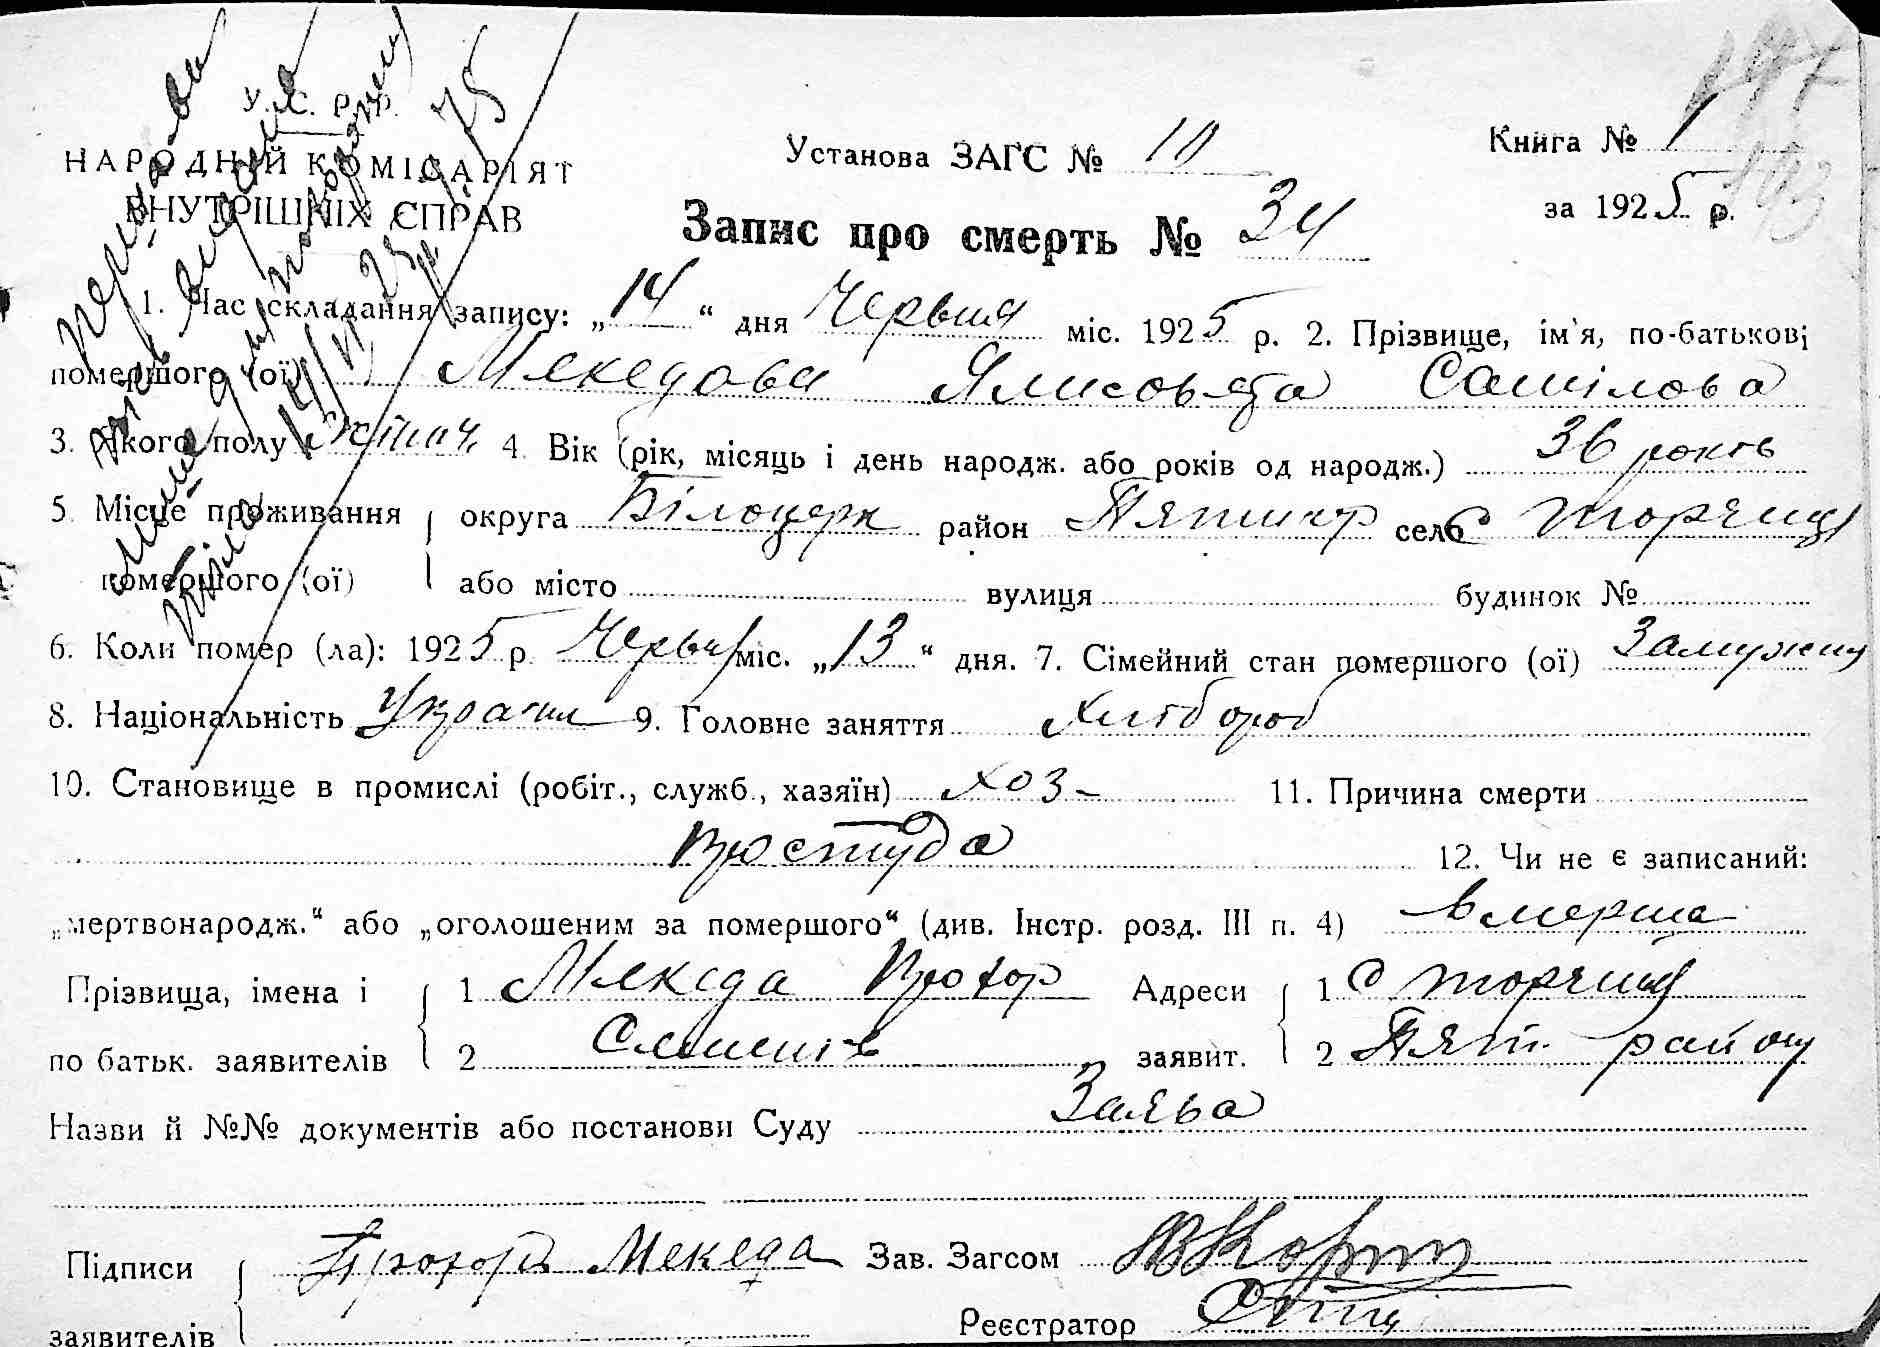 У. С. Р. Р.
НАРОДНІЙ КОМІСАРІЯТ
ВНУТРІШНІХ СПРАВ
Установа ЗАГС № 10
Книга № 1
за 1925 р.
Запис про смерть № 34
1. Час складання запису: „14“ дня Червня міс. 1925 р. 2. Прізвище, ім'я, по-батькові
помершого (ої) Мекедова Ялисовета Самілова
3. Якого полу жіноч. 4. Вік (рік, місяць і день народж. або років од народж.) 36 років
5. Місце проживання округа Білоцерк район Пятигор село С Торчиця
помершого (ої) або місто вулиця будинок №
6. Коли помер (ла): 1925 р. Червня міс. „13“ дня. 7. Сімейний стан помершого (ої) Замужня
8. Національність Україн 9. Головне заняття Хлібороб
10. Становище в промислі (робіт., служб., хазяїн) хоз- 11. Причина смерти
простуда 12. Чи не є записаний:
„мертвонародж.“ або „оголошеним за помершого“ (див. Інстр. розд. III п. 4) вмерша
Прізвища, імена і 1 Мекеда Прохор Адреси 1 С Торчиця
по батьк. заявителів 2 заявит. 2 Пят. району
Назви й №№ документів або постанови Суду Заява
Підписи Прохоръ Мекеда Зав. Загсом
заявителів Реєстратор